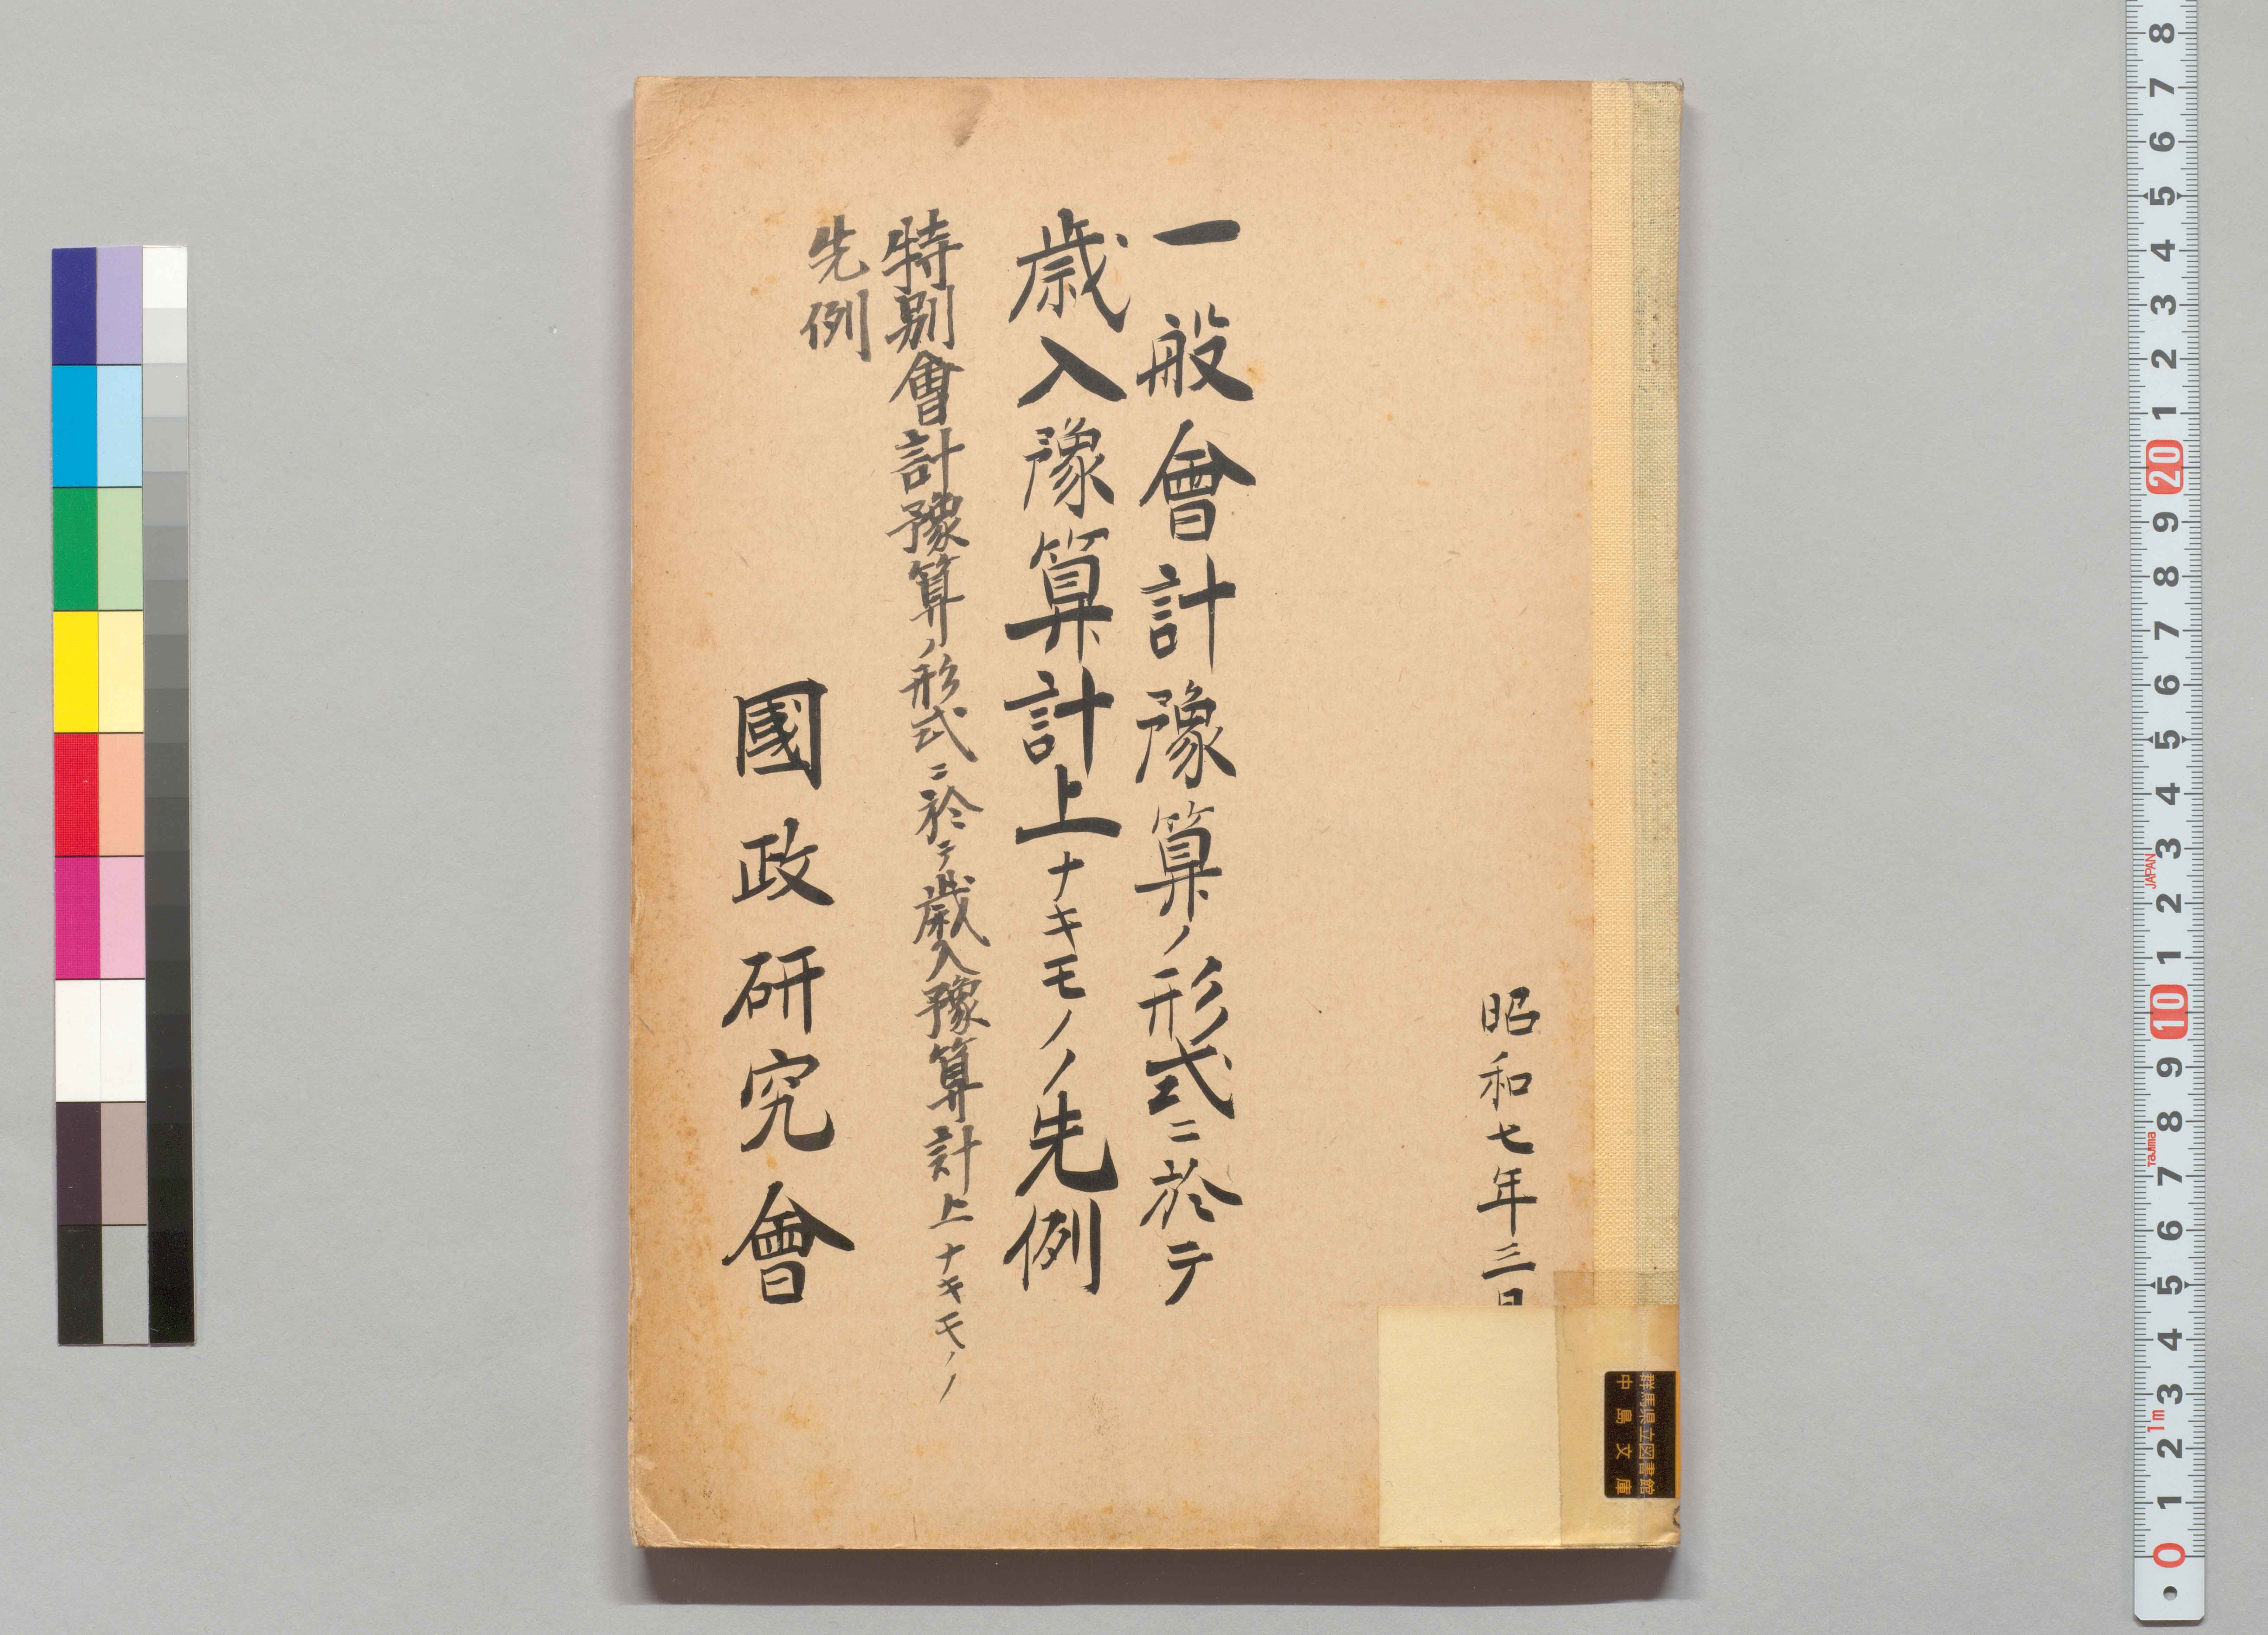 昭和七年三月
一般會計豫算ノ形式ニ於テ
歳入豫算計上ナキモノノ先例
特別會計豫算ノ形式ニ於テ歳入豫算計上ナキモノノ
先例
國政研究會
群馬県立図書館
中島文庫
8
7
6
5
4
3
2
1
20
9
8
7
6
5
4
3
JAPAN
2
1
10
9
8
Tajima
7
6
5
4
3
1m
2
1
0